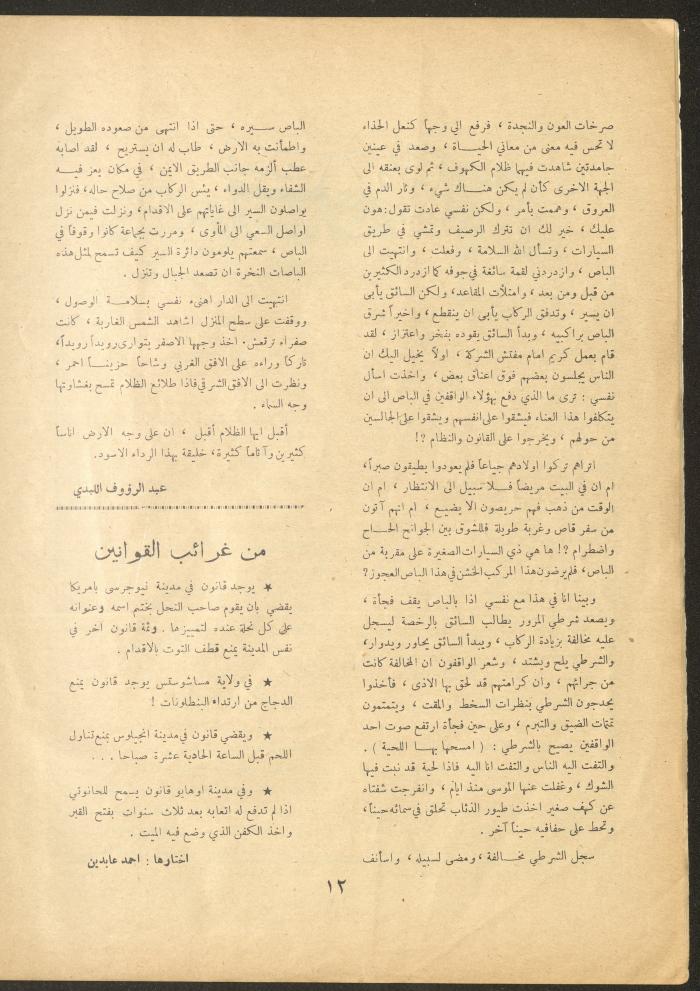 صرخات العون والنجدة ، فرفع الي وجهاً كنعل الحذاء
لا تحس فيه معنى من معاني الحيـاة ، وصعد في عينين
جامدتين شاهدت فيهما ظلام الكهوف ، ثم لوى بعنقه الى
الجهة الاخرى كأن لم يكن هنـاك شيء ، وثار الدم في
العروق ، وهممت بأمر ، ولكن نفسي عادت تقول : هون
عليك ، خير لك ان تترك الرصيف وتمشي في طريق
السيارات ، وتسأل الله السلامة ، وفعلت ، وانتهيت الى
الباص ، وازدردني لقمة سائغة في جوفه كما ازدرد الكثيرين
من قبل ومن بعد ، وامتلأت المقاعد، ولكن السائق يأبى
ان يسير ، وتدفق الركاب يأبى ان ينقطع ، واخيراً شرق
الباص براكبيه ، وبدأ السائق يقوده بفخر واعتزاز ، لقد
قام بعمل كريم امام مفتش الشركة ، اولاً يخيل اليك ان
الناس يجلسون بعضهم فوق اعناق بعض ، واخذت اسأل
نفسي : ترى ما الذي دفع بهؤلاء الواقفين في الباص الى ان
يتكلفوا هذا العناء فيشقوا على انفسهم ويشقوا على الجالسين
من حولهم ، ويخرجوا على القانون والنظام ؟!
اتراهم تركوا اولادهم جياعاً فلم يعودوا يطيقون صبراً،
ام ان في البيت مريضاً فـلا سبيل الى الانتظار ، ام ان
الوقت من ذهب فهم حريصون الا يضيع ، ام انهم آتون
من سفر قاص وغربة طويلة فللشوق بين الجوانح الحـاح
واضطرام ؟! ها هي ذي السيارات الصغيرة على مقربة من
الباص، فلم يرضون هذا المركب الخشن في هذا الباص العجوز؟
وبينا انا في هذا مع نفسي اذا بالباص يقف فجأة ،
ويصعد شرطي المرور يطالب السائق بالرخصة ليسجل
عليه مخالفة بزيادة الركاب ، ويبدأ السائق يحاور ويداور،
والشرطي يلح ويشتد ، وشعر الواقفون ان المخالفة كانت
من جرائهم ، وان كرامتهم قد لحق بها الاذى ، فأخذوا
يحدجون الشرطي بنظرات السخط والمقت ، ويتمتمون
تمتمات الضيق والتبرم ، وعلى حين فجأة ارتفع صوت احد
الواقفين يصيح بالشرطي : ( امسحها بهـا اللحية ) .
والتفت اليه الناس والتفت انا اليه فاذا لحية قد نبت فيها
الشوك ، وغفلت عنها الموسى منذ ايام ، وانفرجت شفتاه
عن كهف صغير اخذت طيور الذئاب تحلق في سمائه حيناً،
وتحط على حفافيه حيناً آخر .
سجل الشرطي مخـالفة ، ومضى لسبيله ، واستأنف
الباص سـيره ، حتى اذا انتهى من صعوده الطويل ،
واطمأنت به الارض ، طاب له ان يستريح ، لقد اصابه
عطب ألزمه جانب الطريق الايمن ، في مكان يعز فيـه
الشفاء ويقل الدواء ، يئس الركاب من صلاح حاله، فنزلوا
يواصلون السير الى غاياتهم على الاقدام، ونزلت فيمن نزل
اواصل السعي الى المأوى ، ومررت بجماعة كانوا وقوفاً في
الباص ، سمعتهم يلومون دائرة السير كيف تسمح لمثل هذه
الباصات النخرة ان تصعد الجبال وتنزل .
انتهيت الى الدار اهنىء نفسي بسلامـة الوصول ،
ووقفت على سطح المنزل اشاهد الشمس الغاربة ، كانت
صفراء ترتعش . اخذ وجهها الاصفر يتوارى رويداً رويداً،
تاركاً وراءه على الافق الغربي وشاحاً حزينـاً احمر ،
ونظرت الى الافق الشرقي فاذا طلائع الظلام تمسح بغشاوتها
وجه السماء .
أقبل ايها الظلام أقبل ، ان على وجه الارض اناساً
كثيرين وآثاماً كثيرة، خليقة بهذا الرداء الاسود.
عبد الرؤوف اللبدي
من غرائب القوانين
★ يوجد قانون في مدينة نيوجرسى بامريكا
يقضي بان يقوم صاحب النحل بختم اسمه وعنوانه
على كل نحلة عنده لتمييزها . وثمة قانون آخر في
نفس المدينة يمنع قطف التوت بالاقدام .
★ في ولاية مساشوستس يوجد قانون يمنع
الدجاج من ارتداء البنطلونات !
★ ويقضي قانون في مدينة انجيلوس بمنع تناول
اللحم قبل الساعة الحادية عشرة صباحا . . .
★ وفي مدينة اوهايو قانون يسمح للحانوتي
اذا لم تدفع له اتعابه بعد ثلاث سنوات بفتح القبر
واخذ الكفن الذي وضع فيه الميت .
اختارها : احمد عابدين
١٢